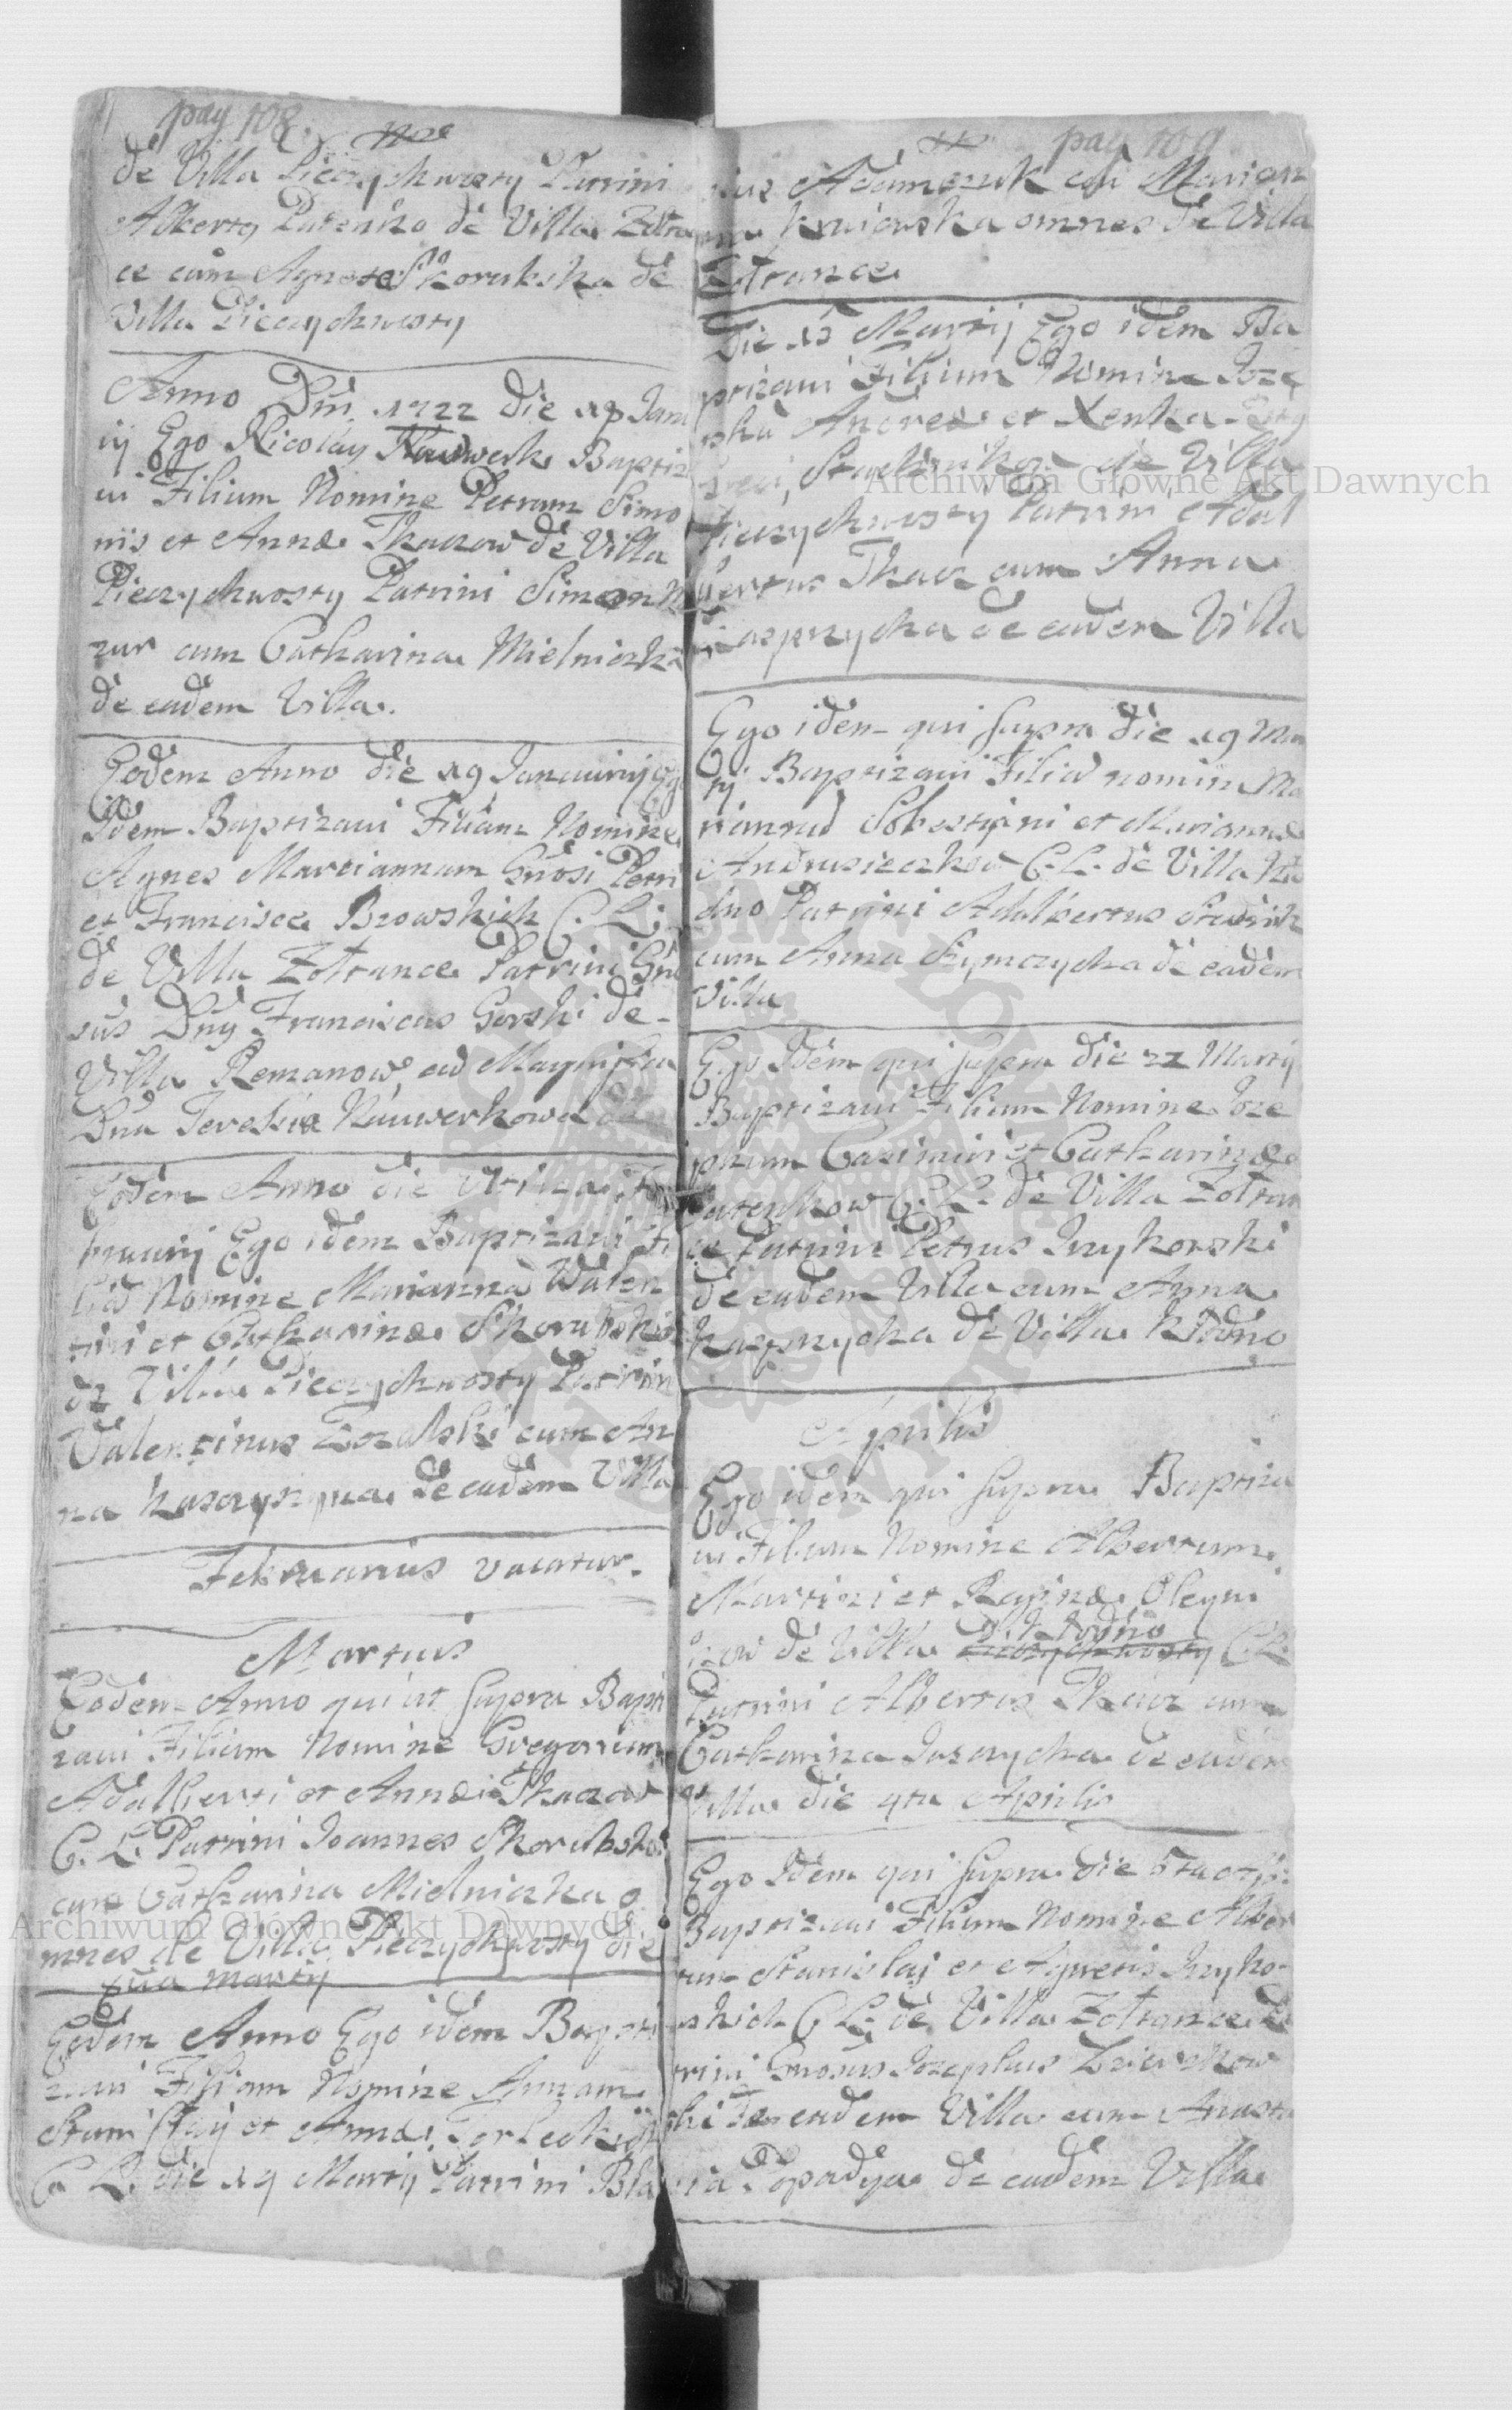 pag 108.
de Villa Pieczychwosty Patrini
Alberty Patenko de Villa Zołtan
ce cum Agnete Skorubska de
Villa Pieczychwosty
Anno Dni 1722 die 19 Janu
ij Ego Nicolay Nauwerk Baptiz
ui Filium Nomine Petrum Simo
nis et Annæ Tkaczow de Villa
Pieczychwosty Patrini Simeon
zur cum Catharina Mielniczka
de eadem Villa.
Eodem Anno die 19 Januarij Eg
Idem Baptizaui Filiam Nomine
Agnes Martiannam Gnosi Petri
et Francisce Brzowskich C. L.
de Villa Zołtance Patrini Gn
sus Dny Franciscus Gorski de
Villa Remanow, ad Magnifica
Dna Teresia Nauwerkowa de
Eodem Anno die Vltima
bruarij Ego idem Baptizaui Fi
liã Nomine Mariannã Walen
tini et Catharinæ Skorubskic
de Villa Pieczychwosty Patrin
Valentinus Zozalski cum An
na de eadem Villa
Februarius vacatur.
Martius
Eodem Anno qui ut supra Bapti
zaui Filium Nomine Gregorium
Adalberti et Annæ Tkaczow
C. L. Patrini Joannes Skorubski
cum Catharina Mielniczka o
mnes de Villa Pieczychwosty die
Martij
Eodem Anno Ego idem Bapti
zaui Filiam Nomine Annam
Stanislaij et Annæ Torleckich
C. L. die 19 Martij Patrini Bla
pag 109
sius Adamczuk cũ Marian
na Kruiowska omnes de Villa
Zołtance
Die 15 Martij Ego idem Ba
ptizaui Filium Nomine Joze
phũ Andreæ et Xenka
de Villa
Pieczychwosty Patrini Adal
bertus Tkacz cum Anna
Kasprzycka de eadem Villa
Ego idem qui supra die 19 Mar
tij Baptizaui Filiã nomine Ma
riannã Sobestijani et Mariannæ
Andrusieczkow C. L. de Villa Kło
dno Patrini Adalbertus
cum Anna Szymczycha de eadem
Villa
Ego Idem qui supra die 22 Martij
Baptizaui Filium Nomine Joze
phum Casimiri et Catharinæ
Patenkow C. L. de Villa Zołtan
ce Patrini Petrus Inykorski
de eadem Villa cum Anna
Kasprzycka de Villa Kłodno
Aprilis
Ego idem qui supra Baptiza
ui Filium Nomine Albertum
Martini et Reginæ Oleyni
kow de Villa Kłodno C. L.
Patrini Albertus Tkacz cum
Catharina Jurczycka de eadem
Villa die 4ta Aprilis
Ego Idem qui supra die 5ta
Baptizaui Filium Nomine Alber
tum Stanislaj et Agnetis Inyko
rskich C. L. de Villa Zołtance Pa
trini Gnosus Josephus
ski de eadem Villa cum Anasta
sia Popadya de eadem Villa
Archiwum Główne Akt Dawnych
Archiwum Główne Akt Dawnych